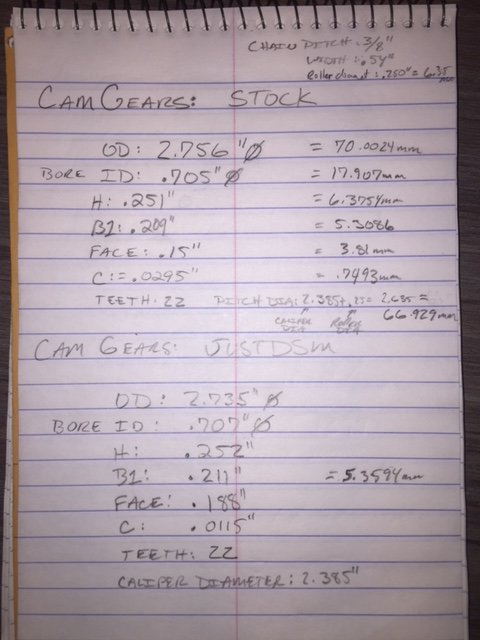 CHAIN PITCH: 3/8"
WIDTH: .54"
Roller diamet: .250" = 6.35 mm
CAM GEARS: STOCK
OD: 2.756"Ø = 70.0024mm
BORE ID: .705"Ø = 17.907mm
H: .251" = 6.3754mm
B1: .209" = 5.3086
FACE: .15" = 3.81mm
C:= .0295" = .7493mm
TEETH: 22 PITCH DIA: 2.385+.25= 2.635 =
CALIPER DIA Roller DIA 66.929mm
CAM GEARS: JUSTDSM
OD: 2.735"Ø
BORE ID: .707"Ø
H: .252"
B1: .211" = 5.3594mm
FACE: .188"
C: .0115"
TEETH: 22
CALIPER DIAMETER: 2.385"